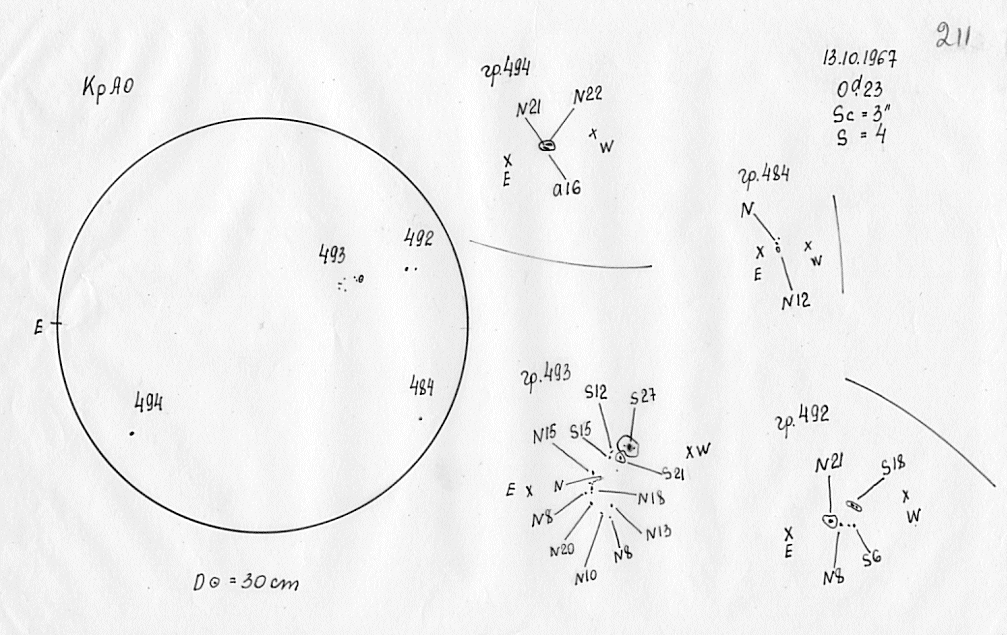 211
КрАО
13.10.1967
0ᵈ.23
Sc = 3"
S = 4
гр.494
N21
N22
x
W
x
E
a16
гр.484
N
x
E
x
W
N12
493
492
E
494
484
гр.493
S12
S27
N15
S15
x W
S21
E x
N
N18
N8
N13
N20
N8
N10
гр.492
N21
S18
x
W
x
E
S6
N8
D⊙ = 30 cm